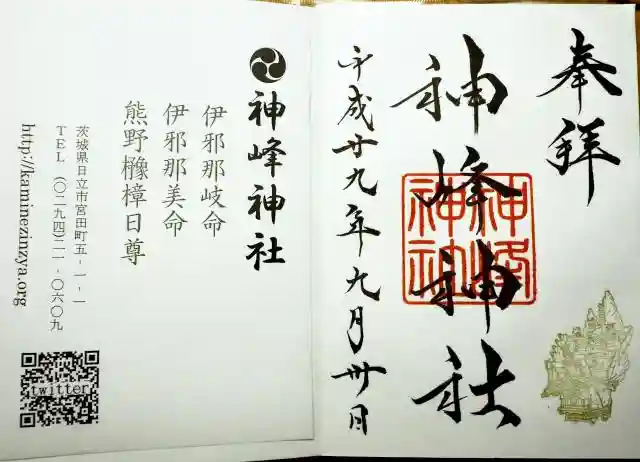 奉拝
神峰神社
神峰神社
平成廿九年九月卅日
神峰神社
伊邪那岐命
伊邪那美命
熊野櫲樟日尊
茨城県日立市宮田町五-一-一
TEL (〇二九四)二一-〇六〇九
http://kaminezinzya.org
twitter